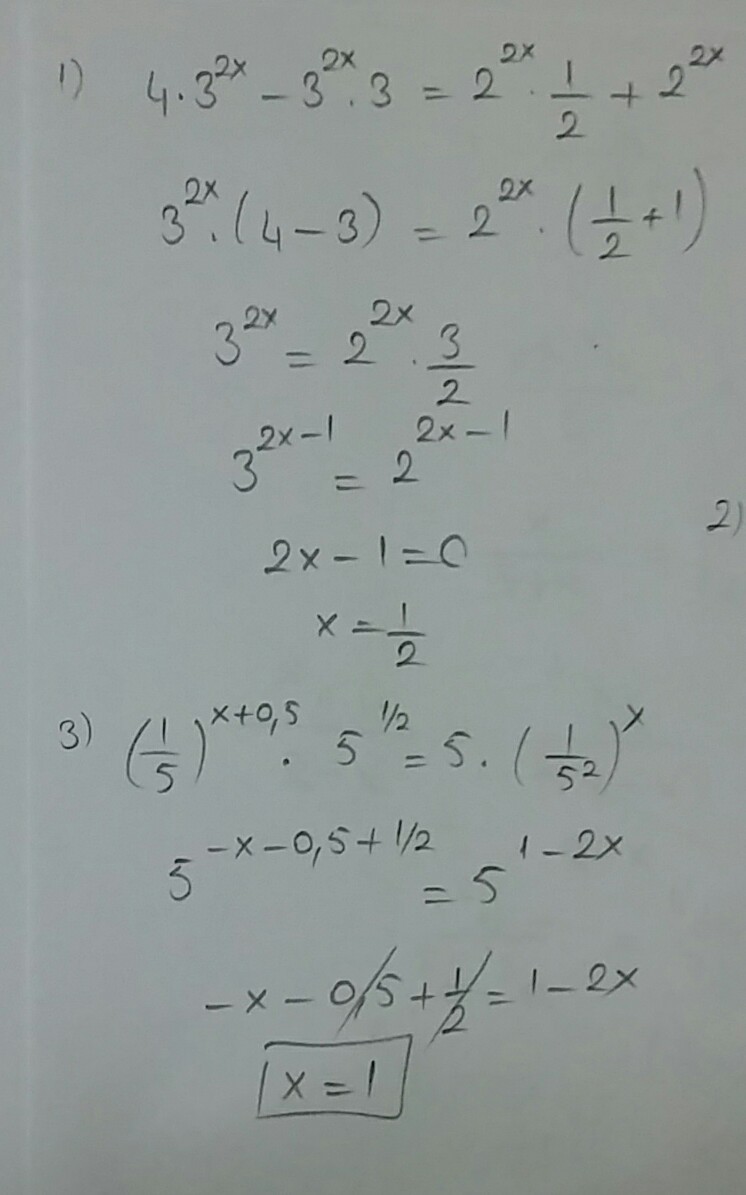 1) 4·3^{2x} − 3^{2x}·3 = 2^{2x}·\frac{1}{2} + 2^{2x}
3^{2x}·(4−3) = 2^{2x}·(\frac{1}{2}+1)
3^{2x} = 2^{2x}·\frac{3}{2}
3^{2x−1} = 2^{2x−1}
2)
2x−1=0
x=\frac{1}{2}
3) (\frac{1}{5})^{x+0,5}·5^{1/2} = 5·(\frac{1}{5^2})^x
5^{−x−0,5+1/2} = 5^{1−2x}
−x−0,5+\frac{1}{2}=1−2x
x=1